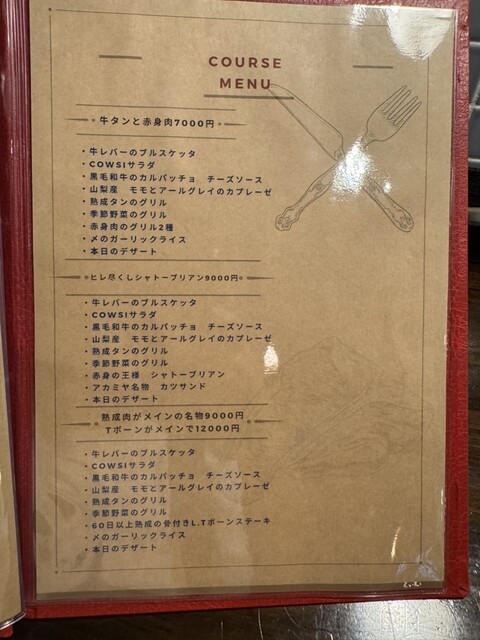 COURSE
MENU
牛タンと赤身肉7000円
・牛レバーのブルスケッタ
・COWSIサラダ
・黒毛和牛のカルパッチョ　チーズソース
・山梨産　モモとアールグレイのカプレーゼ
・熟成タンのグリル
・季節野菜のグリル
・赤身肉のグリル2種
・〆のガーリックライス
・本日のデザート
ヒレ尽くしシャトーブリアン9000円
・牛レバーのブルスケッタ
・COWSIサラダ
・黒毛和牛のカルパッチョ　チーズソース
・山梨産　モモとアールグレイのカプレーゼ
・熟成タンのグリル
・季節野菜のグリル
・赤身の王様　シャトーブリアン
・アカミヤ名物　カツサンド
・本日のデザート
熟成肉がメインの名物9000円
Tボーンがメインで12000円
・牛レバーのブルスケッタ
・COWSIサラダ
・黒毛和牛のカルパッチョ　チーズソース
・山梨産　モモとアールグレイのカプレーゼ
・熟成タンのグリル
・季節野菜のグリル
・60日以上熟成の骨付きL.Tボーンステーキ
・〆のガーリックライス
・本日のデザート